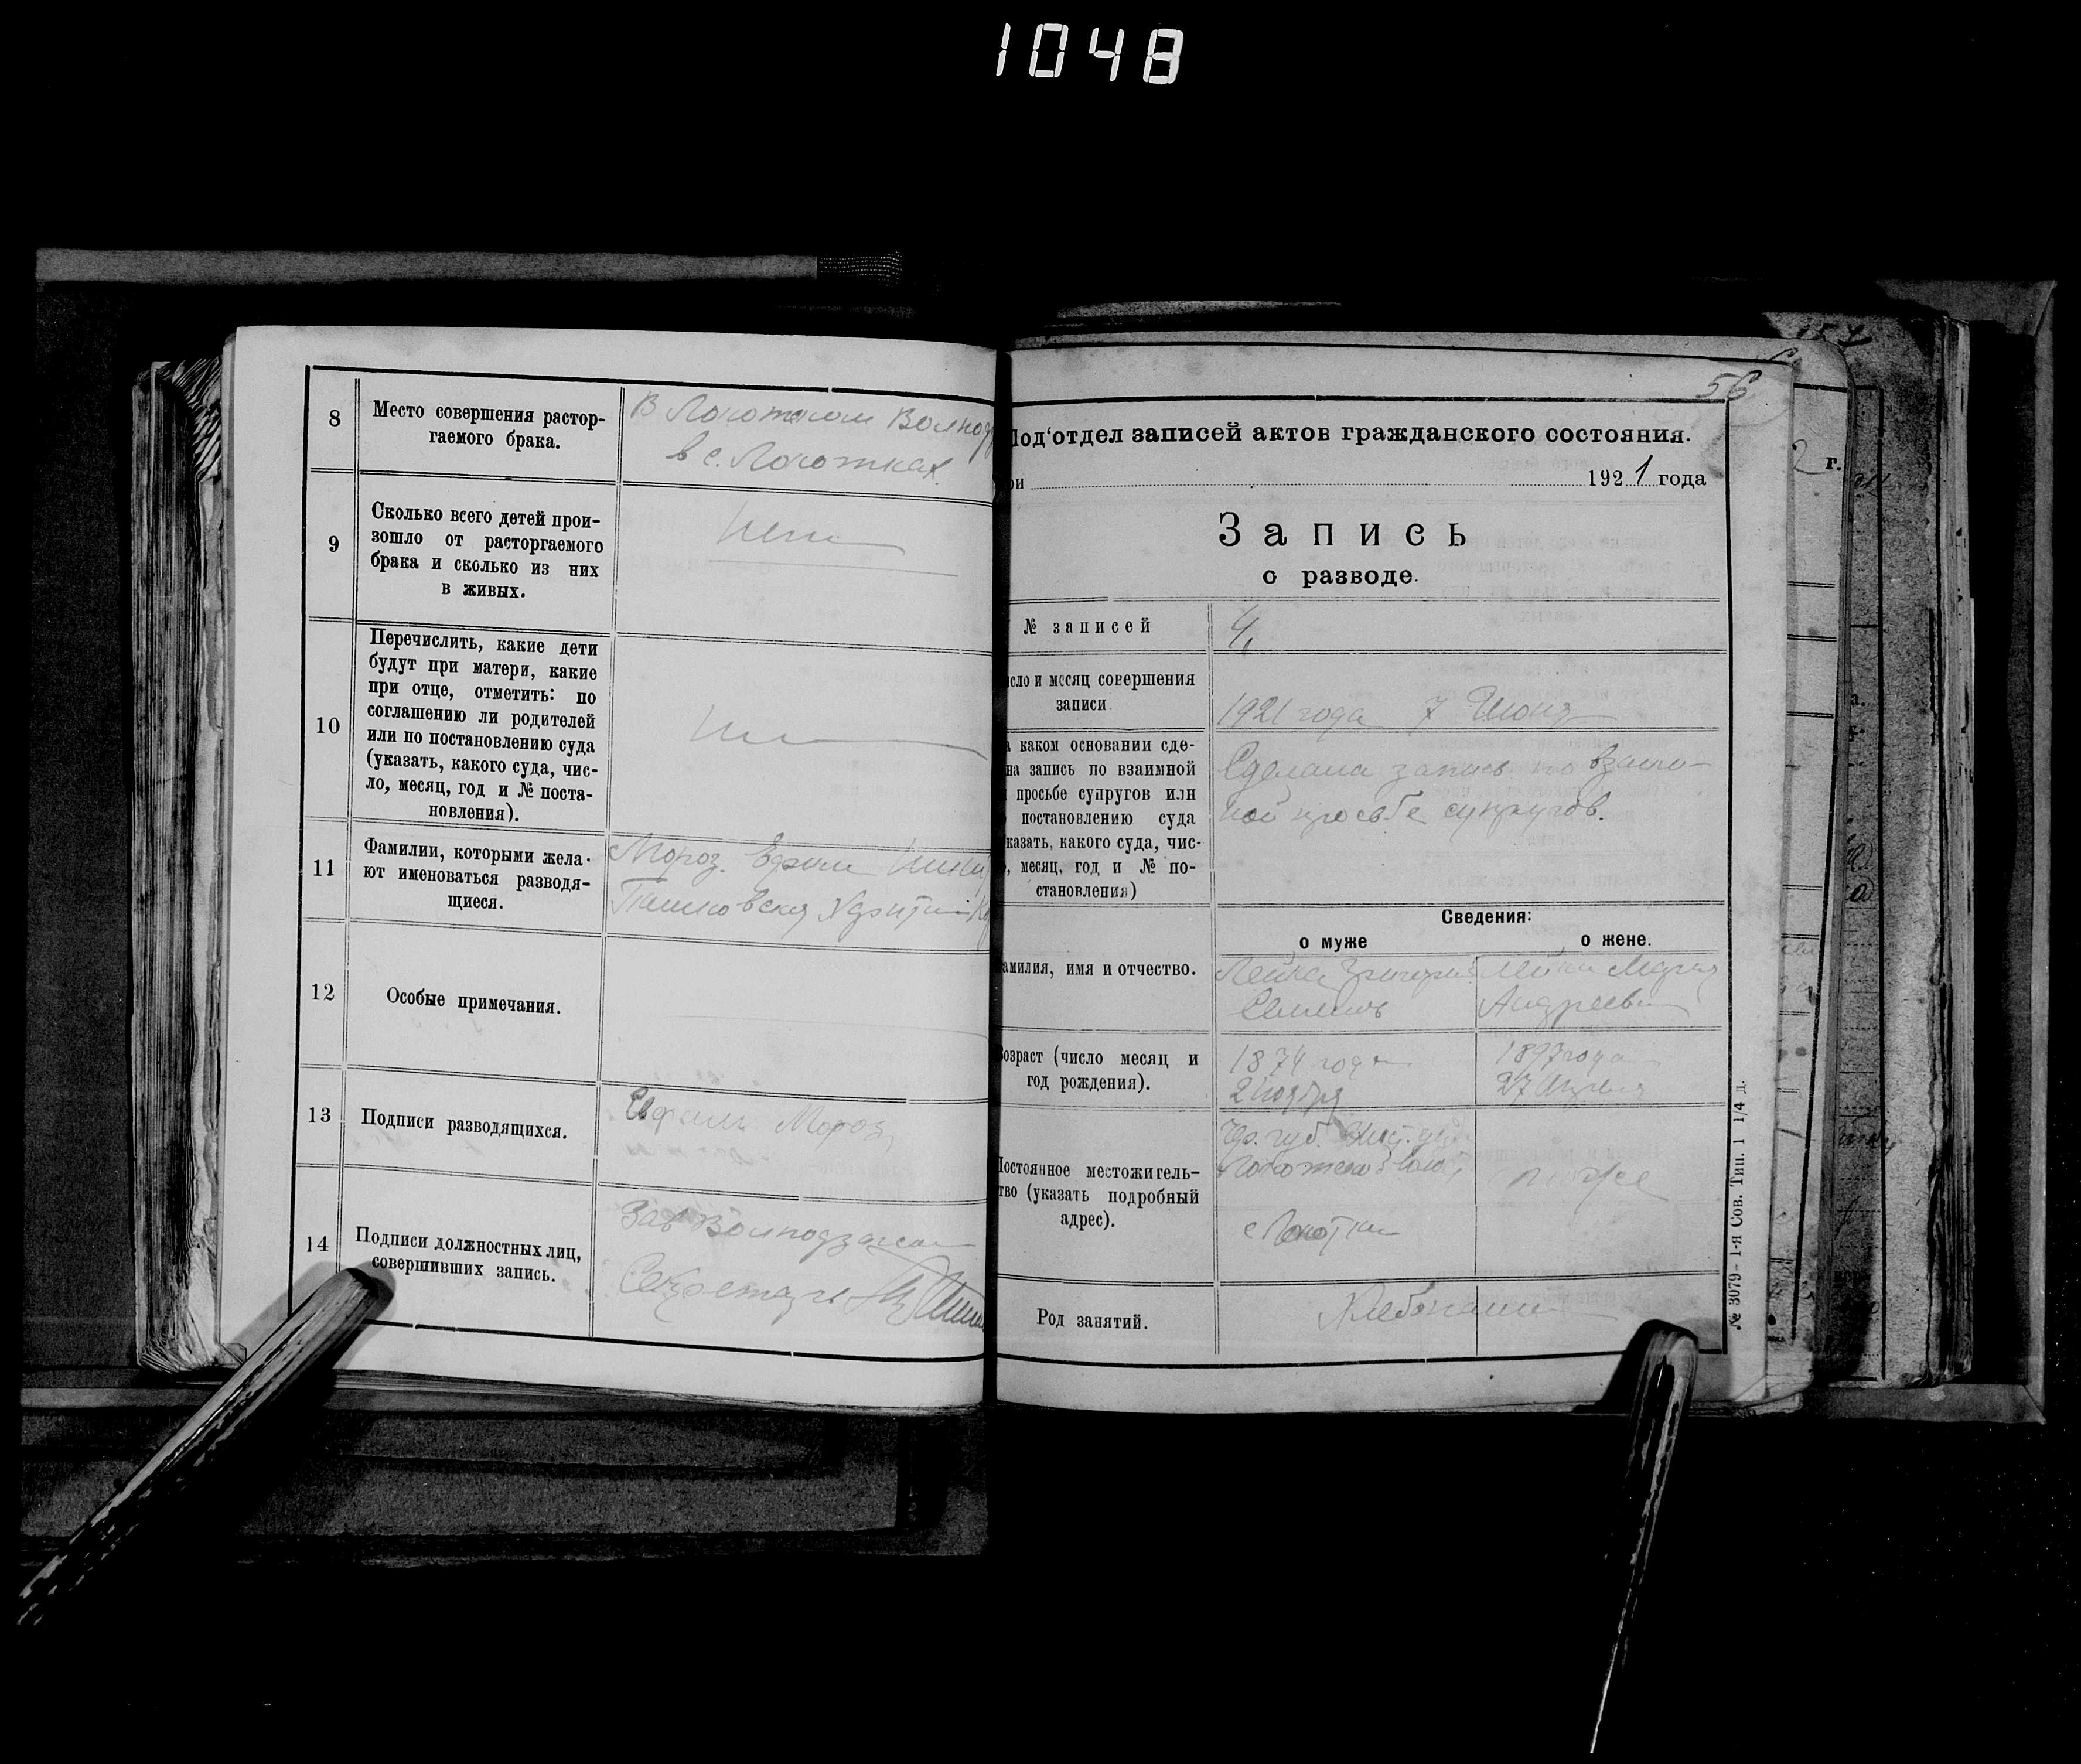 1048
8
Место совершения растор-
гаемого брака.
В Локотском Волпод
в с. Локотках
9
Сколько всего детей прои-
зошло от расторгаемого
брака и сколько из них
в живых.
Нет
10
Перечислить, какие дети
будут при матери, какие
при отце, отметить: по
соглашению ли родителей
или по постановлению суда
(указать, какого суда, чис-
ло, месяц, год и № поста-
новления).
11
Фамилии, которыми жела-
ют именоваться разводя-
щиеся.
Мороз
12
Особые примечания.
13
Подписи разводящихся.
Мороз
14
Подписи должностных лиц,
совершивших запись.
Зав Волподзагсом
Секретарь
56
Под'отдел записей актов гражданского состояния.
ри 1921 года
Запись
о разводе.
№ записей
4
исло и месяц совершения
записи
1921 года 7 Июня
а каком основании сде-
на запись по взаимной
просьбе супругов или
постановлению суда
казать, какого суда, чис-
, месяц, год и № по-
становления)
Сделана запись по взаим-
ной просьбе супругов.
Сведения:
о муже
о жене.
амилия, имя и отчество.
Лейка Григорий
Лейка Мария
Андреевна
Возраст (число месяц и
год рождения).
1874 года
2 ноября
1897 года
27 Апреля
Постоянное местожитель-
тво (указать подробный
адрес).
с Локотки
тоже
Род занятий.
Хлебопашец
№ 3079 – 1-я Сов. Тип. 1 1/4 д.
2 г.